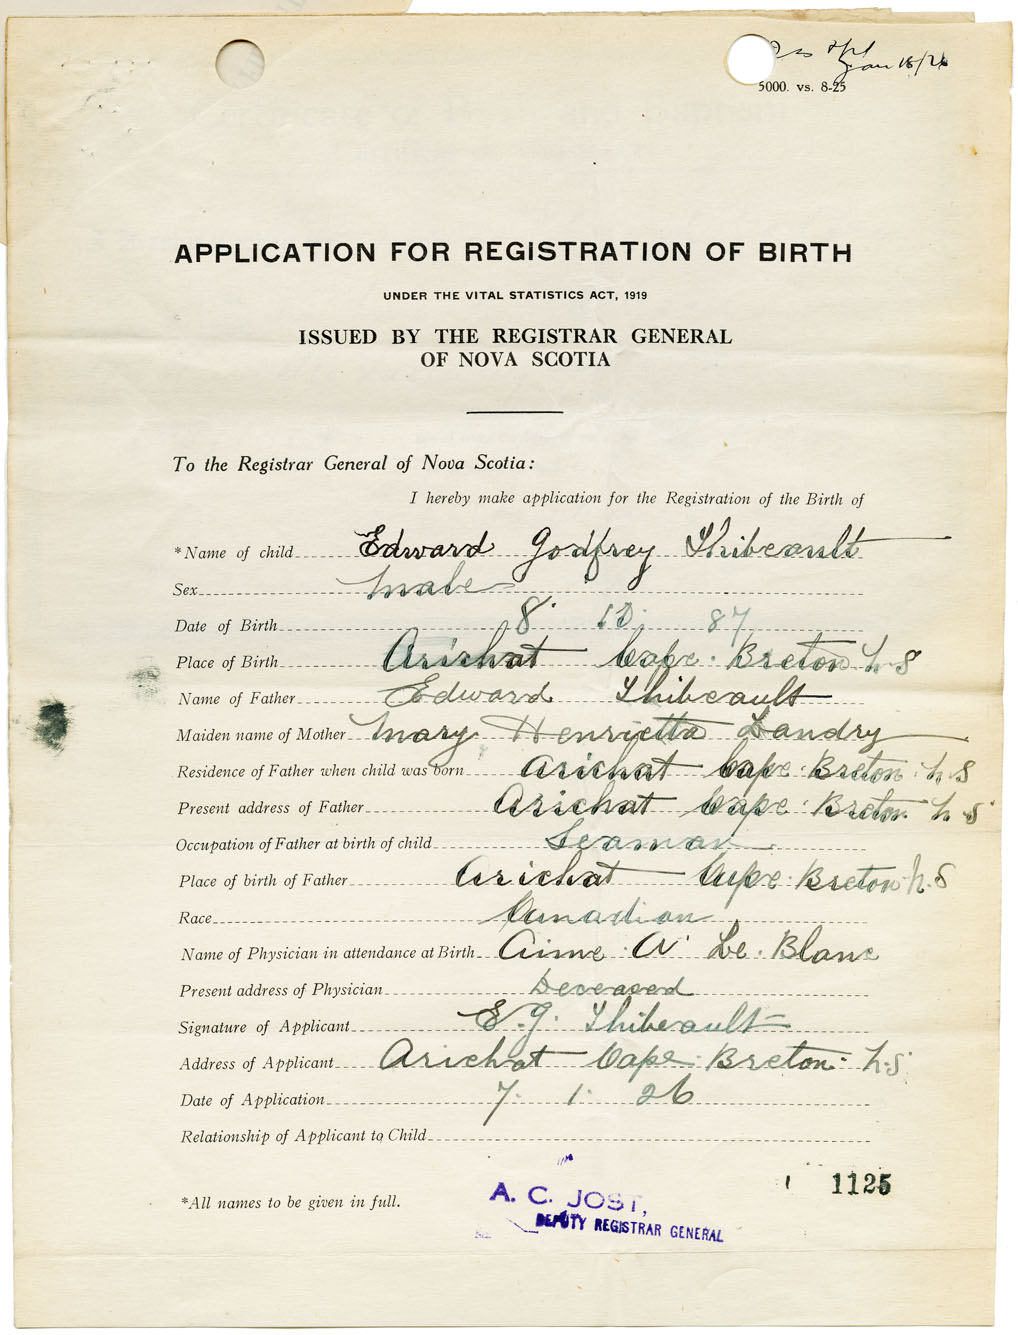 Jan 18/26
5000. vs. 8-25
APPLICATION FOR REGISTRATION OF BIRTH
UNDER THE VITAL STATISTICS ACT, 1919
ISSUED BY THE REGISTRAR GENERAL
OF NOVA SCOTIA
To the Registrar General of Nova Scotia:
I hereby make application for the Registration of the Birth of
*Name of child Edward Godfrey Thibeault
Sex Male
Date of Birth 8. 10. 87
Place of Birth Arichat Cape. Breton N-S
Name of Father Edward Thibeault
Maiden name of Mother Mary Henrietta Landry
Residence of Father when child was born Arichat Cape. Breton. N-S
Present address of Father Arichat Cape. Breton. N-S.
Occupation of Father at birth of child Seaman
Place of birth of Father Arichat Cape. Breton. N-S
Race Canadian
Name of Physician in attendance at Birth Aime. A. Le. Blanc
Present address of Physician Deceased
Signature of Applicant E. G. Thibeault
Address of Applicant Arichat Cape. Breton. N-S.
Date of Application 7. 1. 26
Relationship of Applicant to Child
1125
*All names to be given in full.
A. C. JOST,
DEPUTY REGISTRAR GENERAL